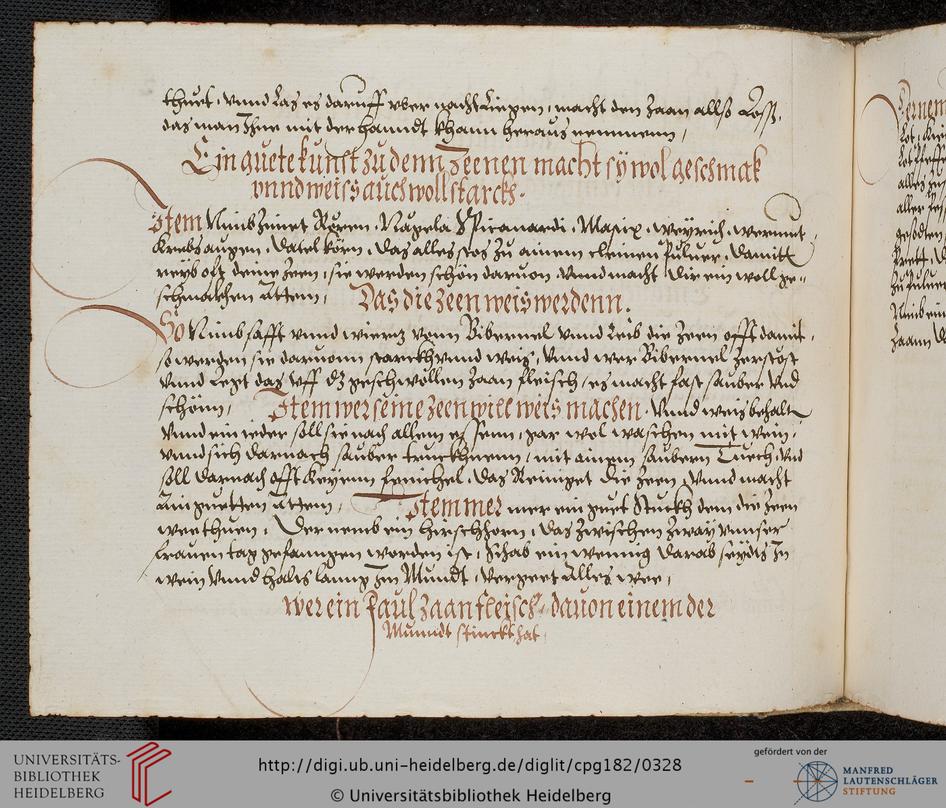 thuet, vnnd Las es daruff vber nacht Liegen, macht den zaan allso Loß,
das man Ihne mit der hanndt khann heraus nemmenn,
Ein guete kunst zu denn Zeenen macht sy wol geschmak
vnnd weiss auch woll starckh.
Item Nimb Zimet Rören, Nägela Spicanardi, Maxix, weyrich, wermut,
Krebsaugen, Datel körn, das alles stos zu ainem cleinen Puluer, damitt
reyb oft deine Zeen, sie werden schön daruon, vnnd macht dir ein woll ge-
schmackhen Attem, Das die zeen weis werdenn.
So Nimb safft vnnd wurtz vonn Bibernel vnnd Reib die Zeen offt damit,
so werden sie daruonn starckh vnnd weis, vnnd wer Bibernel Zerstost
vnnd Legt das vff dz geschwollen zaan fleisch, es macht fast sauber vnd
schönn, Item wer seine zeen will weis machen, vnnd weis behalten
vnnd ein ieder soll sie nach allem essenn, gar wol waschen mit wein,
vnnd sich darnach sauber truckhnenn, mit ainem saubern Tuech, vnd
soll darnach offt Keyenn fenichel, das Reiniget die zeen vnnd macht
ain guetten Attem, Item mer mer ein guet Stuckh dem die zeen
wee thuen, Der nemb ein hirschhorn, das zwischen zway vnnser
frauen tag gefanngen worden ist, schab ein wennig darab seydts In
wein vnnd halts lanng Im Mundt, vergeet alles wee,
wer ein faul zaanfleisch, dauon einem der
Munndt stinckht hat
UNIVERSITÄTS-
BIBLIOTHEK
HEIDELBERG
http://digi.ub.uni-heidelberg.de/diglit/cpg182/0328
© Universitätsbibliothek Heidelberg
gefördert von der
MANFRED
LAUTENSCHLÄGER
STIFTUNG